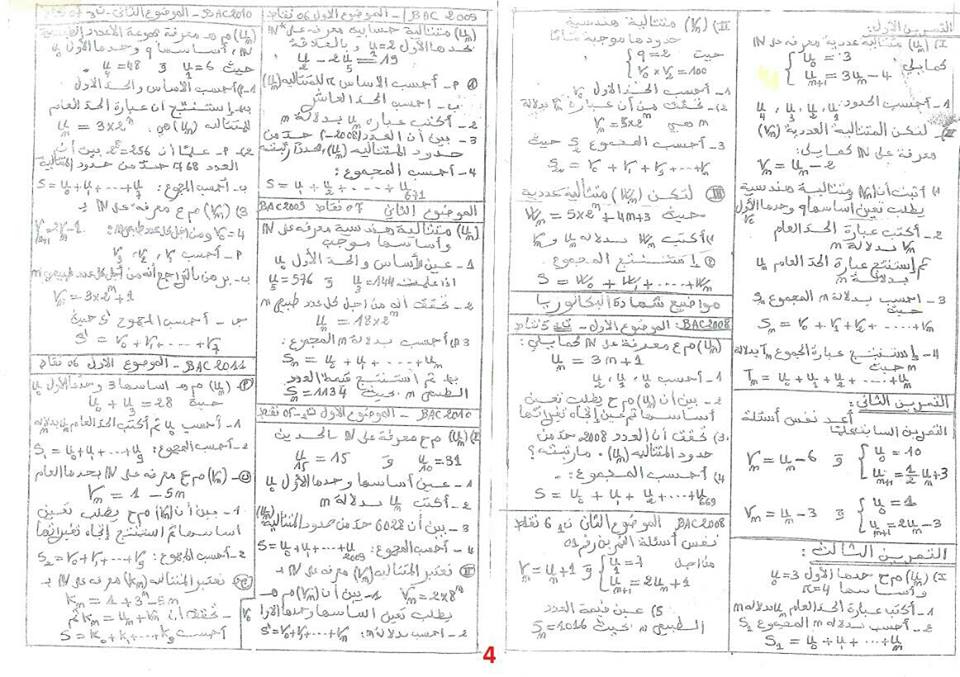 التمرين الأول:
I) (Uₙ) متتالية عددية معرفة على IN
كما يلي: { U₀ = 3
Uₙ₊₁ = 3Uₙ - 4
1- أحسب الحدود: U₁, U₂, U₃, U₄
II- لتكن المتتالية العددية (Vₙ)
معرفة على IN كمايلي:
Vₙ = Uₙ - 2
1) أثبت أن (Vₙ) متتالية هندسية
يطلب تعين أساسها q وحدها الأول
2- أكتب عبارة الحد العام
Vₙ بدلالة n
ثم إستنتج عبارة الحد العام Uₙ
بدلالة n
3- احسب بدلالة n المجموع Sₙ
حيث
Sₙ = V₀ + V₁ + V₂ + ..... + Vₙ
4- إستنتج عبارة المجموع Tₙ بدلالة
n حيث
Tₙ = U₀ + U₁ + U₂ + ... + Uₙ
التمرين الثاني:
أعد نفس أسئلة
التمرين السابق
Vₙ = Uₙ - 6 و { U₀ = 10
Uₙ₊₁ = 1/2 Uₙ + 3
Vₙ = Uₙ - 3 و { U₀ = 1
Uₙ₊₁ = 2Uₙ - 3
التمرين الثالث:
I) (Uₙ) م ح حدها الأول U₀ = 3
و أساسها r = 4
1- أكتب عبارة الحد العام Uₙ بدلالة n
2- أحسب بدلالة n المجموع S₁
S₁ = U₀ + U₁ + ... + Uₙ
II) (Vₙ) متتالية هندسية
حدودها موجبة تماما
حيث { q = 2
V₀ × V₂ = 100
1- أحسب الحد الأول V₀
2- تحقق من أن عبارة Vₙ بدلالة
n هي Vₙ = 5×2ⁿ
3- أحسب المجموع S₂ حيث
S₂ = V₀ + V₁ + V₂ + ... + Vₙ
III) لتكن (Wₙ) متتالية عددية
حيث Wₙ = 5×2ⁿ + 4n + 3
1) أكتب Wₙ بدلالة Uₙ و Vₙ
2) إستنتج المجموع
S = W₀ + W₁ + .... + Wₙ
مواضيع شهادة البكالوريا
BAC 2008: الموضوع الأول - 5 نقاط
(Uₙ) م ع معرفة على IN كمايلي:
Uₙ = 3n + 1
1- أحسب U₀, U₁, U₂
2- بين أن (Uₙ) م ح يطلب تعين
أساسها ثم عين إتجاه تغيراتها
3) تحقق أن العدد 2008 حد من
حدود المتتالية (Uₙ). ما رتبته؟
4) أحسب المجموع:
S = U₀ + U₁ + U₂ + ... + U₆₆₉
BAC 2008 الموضوع الثاني 6 نقاط
نفس أسئلة التمرين رقم 01
من أجل
Vₙ = Uₙ + 1 و { U₁ = 7
Uₙ₊₁ = 2Uₙ + 1
5) عين قيمة العدد
الطبيعي n بحيث Sₙ = 1016
BAC 2009 - الموضوع الأول 06 نقاط
(Uₙ) متتالية حسابية معرفة على IN*
حدها الأول U₁ = 2 و بالعلاقة
U₂ - 2U₅ = 19
1- أ- أحسب الأساس r للمتتالية (Uₙ)
ب- احسب الحد العاشر
2- أكتب عبارة Uₙ بدلالة n
3- بين أن العدد (-2008) حد من
حدود المتتالية (Uₙ)، حدد رتبته
4- أحسب المجموع:
S = U₁ + U₂ + .... + U₆₇₁
الموضوع الثاني 07 نقاط BAC 2009
(Uₙ) متتالية هندسية معرفة على IN
وأساسها موجب
1- عين الأساس والحد الأول U₀
اذا علمت U₃ = 144 و U₅ = 576
2- تحقق أنه من أجل كل عدد طبيعي n
Uₙ = 18×2ⁿ
3) أ- أحسب بدلالة n المجموع:
Sₙ = U₀ + U₁ + ..... + Uₙ
ب- ثم استنتج قيمة العدد
الطبيعي n بحيث Sₙ = 1134
BAC 2010 - الموضوع الأول
I) (Uₙ) م ح معرفة على IN بالحدين
U₁₀ = 31 و U₁₅ = 15
1- عين أساسها وحدها الأول U₀
2- أكتب Uₙ بدلالة n
3- بين أن 6028 حد من حدود المتتالية (Uₙ)
4- أحسب المجموع: S = U₀ + U₁ + ... + U₂₀₀₉
II) نعتبر المتتالية (Vₙ) معرفة على IN بـ
Vₙ = 2×8ⁿ 1- بين أن (Vₙ) م هـ
يطلب تعين أساسها وحدها الأول V₀
2- أحسب بدلالة n: S' = V₀ + V₁ + ... + Vₙ
BAC 2010 - الموضوع الثاني
(Uₙ) م هـ معرفة على مجموعة الأعداد الطبيعية
IN، أساسها q وحدها الأول U₀
حيث U₁ = 6 و U₄ = 48
1- أ- أحسب الأساس والحد الأول
ب- إستنتج أن عبارة الحد العام
للمتتالية (Uₙ) هي: Uₙ = 3×2ⁿ
2) أ- علما أن 2⁸ = 256 بين أن
العدد 768 حد من حدود المتتالية
ب- أحسب المجموع: S = U₀ + U₁ + ... + Uₙ
3) (Vₙ) م ع معرفة على IN بـ
V₀ = 4 ومن أجل كل عدد طبيعي n: Vₙ₊₁ = 2Vₙ - 1
أ- أحسب V₁, V₂, V₃
ب- برهن بالتراجع أنه من أجل كل عدد طبيعي n
Vₙ = 3×2ⁿ + 1
جـ- أحسب المجموع S' حيث
S' = V₀ + V₁ + ... + V₇
BAC 2011 - الموضوع الأول 06 نقاط
(Uₙ) م ح أساسها 3 وحدها الأول U₀
حيث U₀ + U₃ = 28
1- أحسب U₀ ثم أكتب الحد العام Uₙ بدلالة n
2- أحسب المجموع: S₁ = U₀ + U₁ + ... + U₉
(Vₙ) م ع معرفة على IN بحدها العام
Vₙ = 1 - 5n
1- بين أن (Vₙ) م ح يطلب تعين
أساسها ثم استنتج إتجاه تغيراتها
2- أحسب المجموع: S₂ = V₀ + V₁ + ... + V₉
نعتبر المتتالية (kₙ) معرفة على IN بـ
kₙ = 1 + 3n - 5n
- تحقق أن: kₙ = Uₙ + Vₙ ثم
أحسب S = k₀ + k₁ + ... + k₉
4